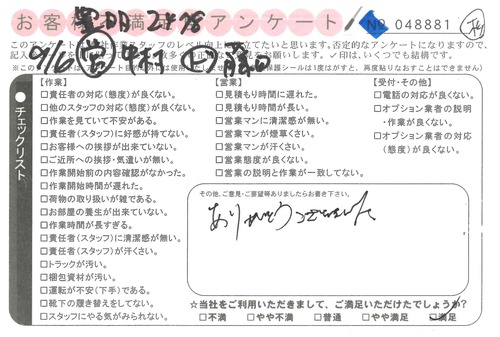 お客様満足アンケート
No 048881
このアンケートは
スタッフのレベル向上に役立てたいと思います。否定的なアンケートになりますので、
✓印は、いくつでも結構です。
チェックリスト
【作業】
□責任者の対応(態度)が良くない。
□他のスタッフの対応(態度)が良くない。
□作業を見ていて不安がある。
□責任者(スタッフ)に好感が持てない。
□お客様への挨拶が出来ていない。
□ご近所への挨拶・気遣いが無い。
□作業開始前の内容確認がなかった。
□作業開始時間が遅れた。
□荷物の取り扱いが雑である。
□お部屋の養生が出来ていない。
□作業時間が長すぎる。
□責任者(スタッフ)に清潔感が無い。
□責任者(スタッフ)が汗くさい。
□トラックが汚い。
□梱包資材が汚い。
□運転が不安(下手)である。
□靴下の履き替えをしてない。
□スタッフにやる気がみられない。
【営業】
□見積もり時間に遅れた。
□見積もり時間が長い。
□営業マンに清潔感が無い。
□営業マンが煙草くさい。
□営業マンが汗くさい。
□営業態度が良くない。
□営業の説明と作業が一致してない。
【受付・その他】
□電話の対応が良くない。
□オプション業者の説明
・作業が良くない。
□オプション業者の対応
(態度)が良くない。
その他、ご意見・ご要望等ありましたらお書き下さい。
ありがとうございました
☆当社をご利用いただきまして、ご満足いただけたでしょうか?
□不満 □やや不満 □普通 □やや満足 □満足